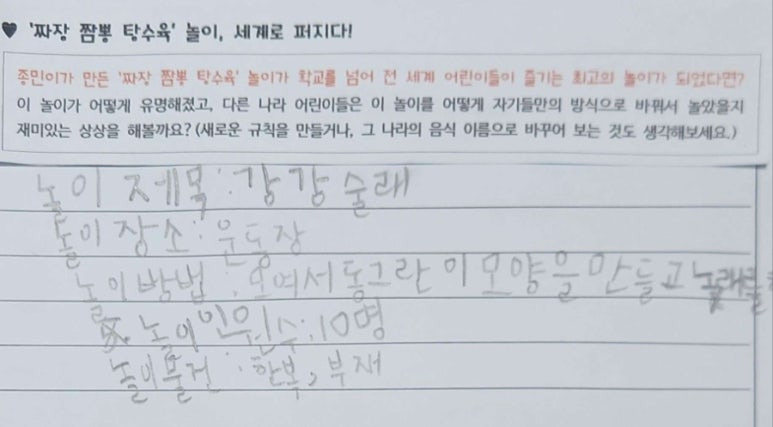 ♥ '짜장 짬뽕 탕수육' 놀이, 세계로 퍼지다!
종민이가 만든 '짜장 짬뽕 탕수육' 놀이가 학교를 넘어 전 세계 어린이들이 즐기는 최고의 놀이가 되었다면?
이 놀이가 어떻게 유명해졌고, 다른 나라 어린이들은 이 놀이를 어떻게 자기들만의 방식으로 바꿔서 놀았을지
재미있는 상상을 해볼까요? (새로운 규칙을 만들거나, 그 나라의 음식 이름으로 바꾸어 보는 것도 생각해보세요.)
놀이 제목 : 강강술래
놀이 장소 : 운동장
놀이 방법 : 모여서 동그란 이 모양을 만들고 노래를
놀이 인원수 : 10명
놀이물건 : 한복, 부채